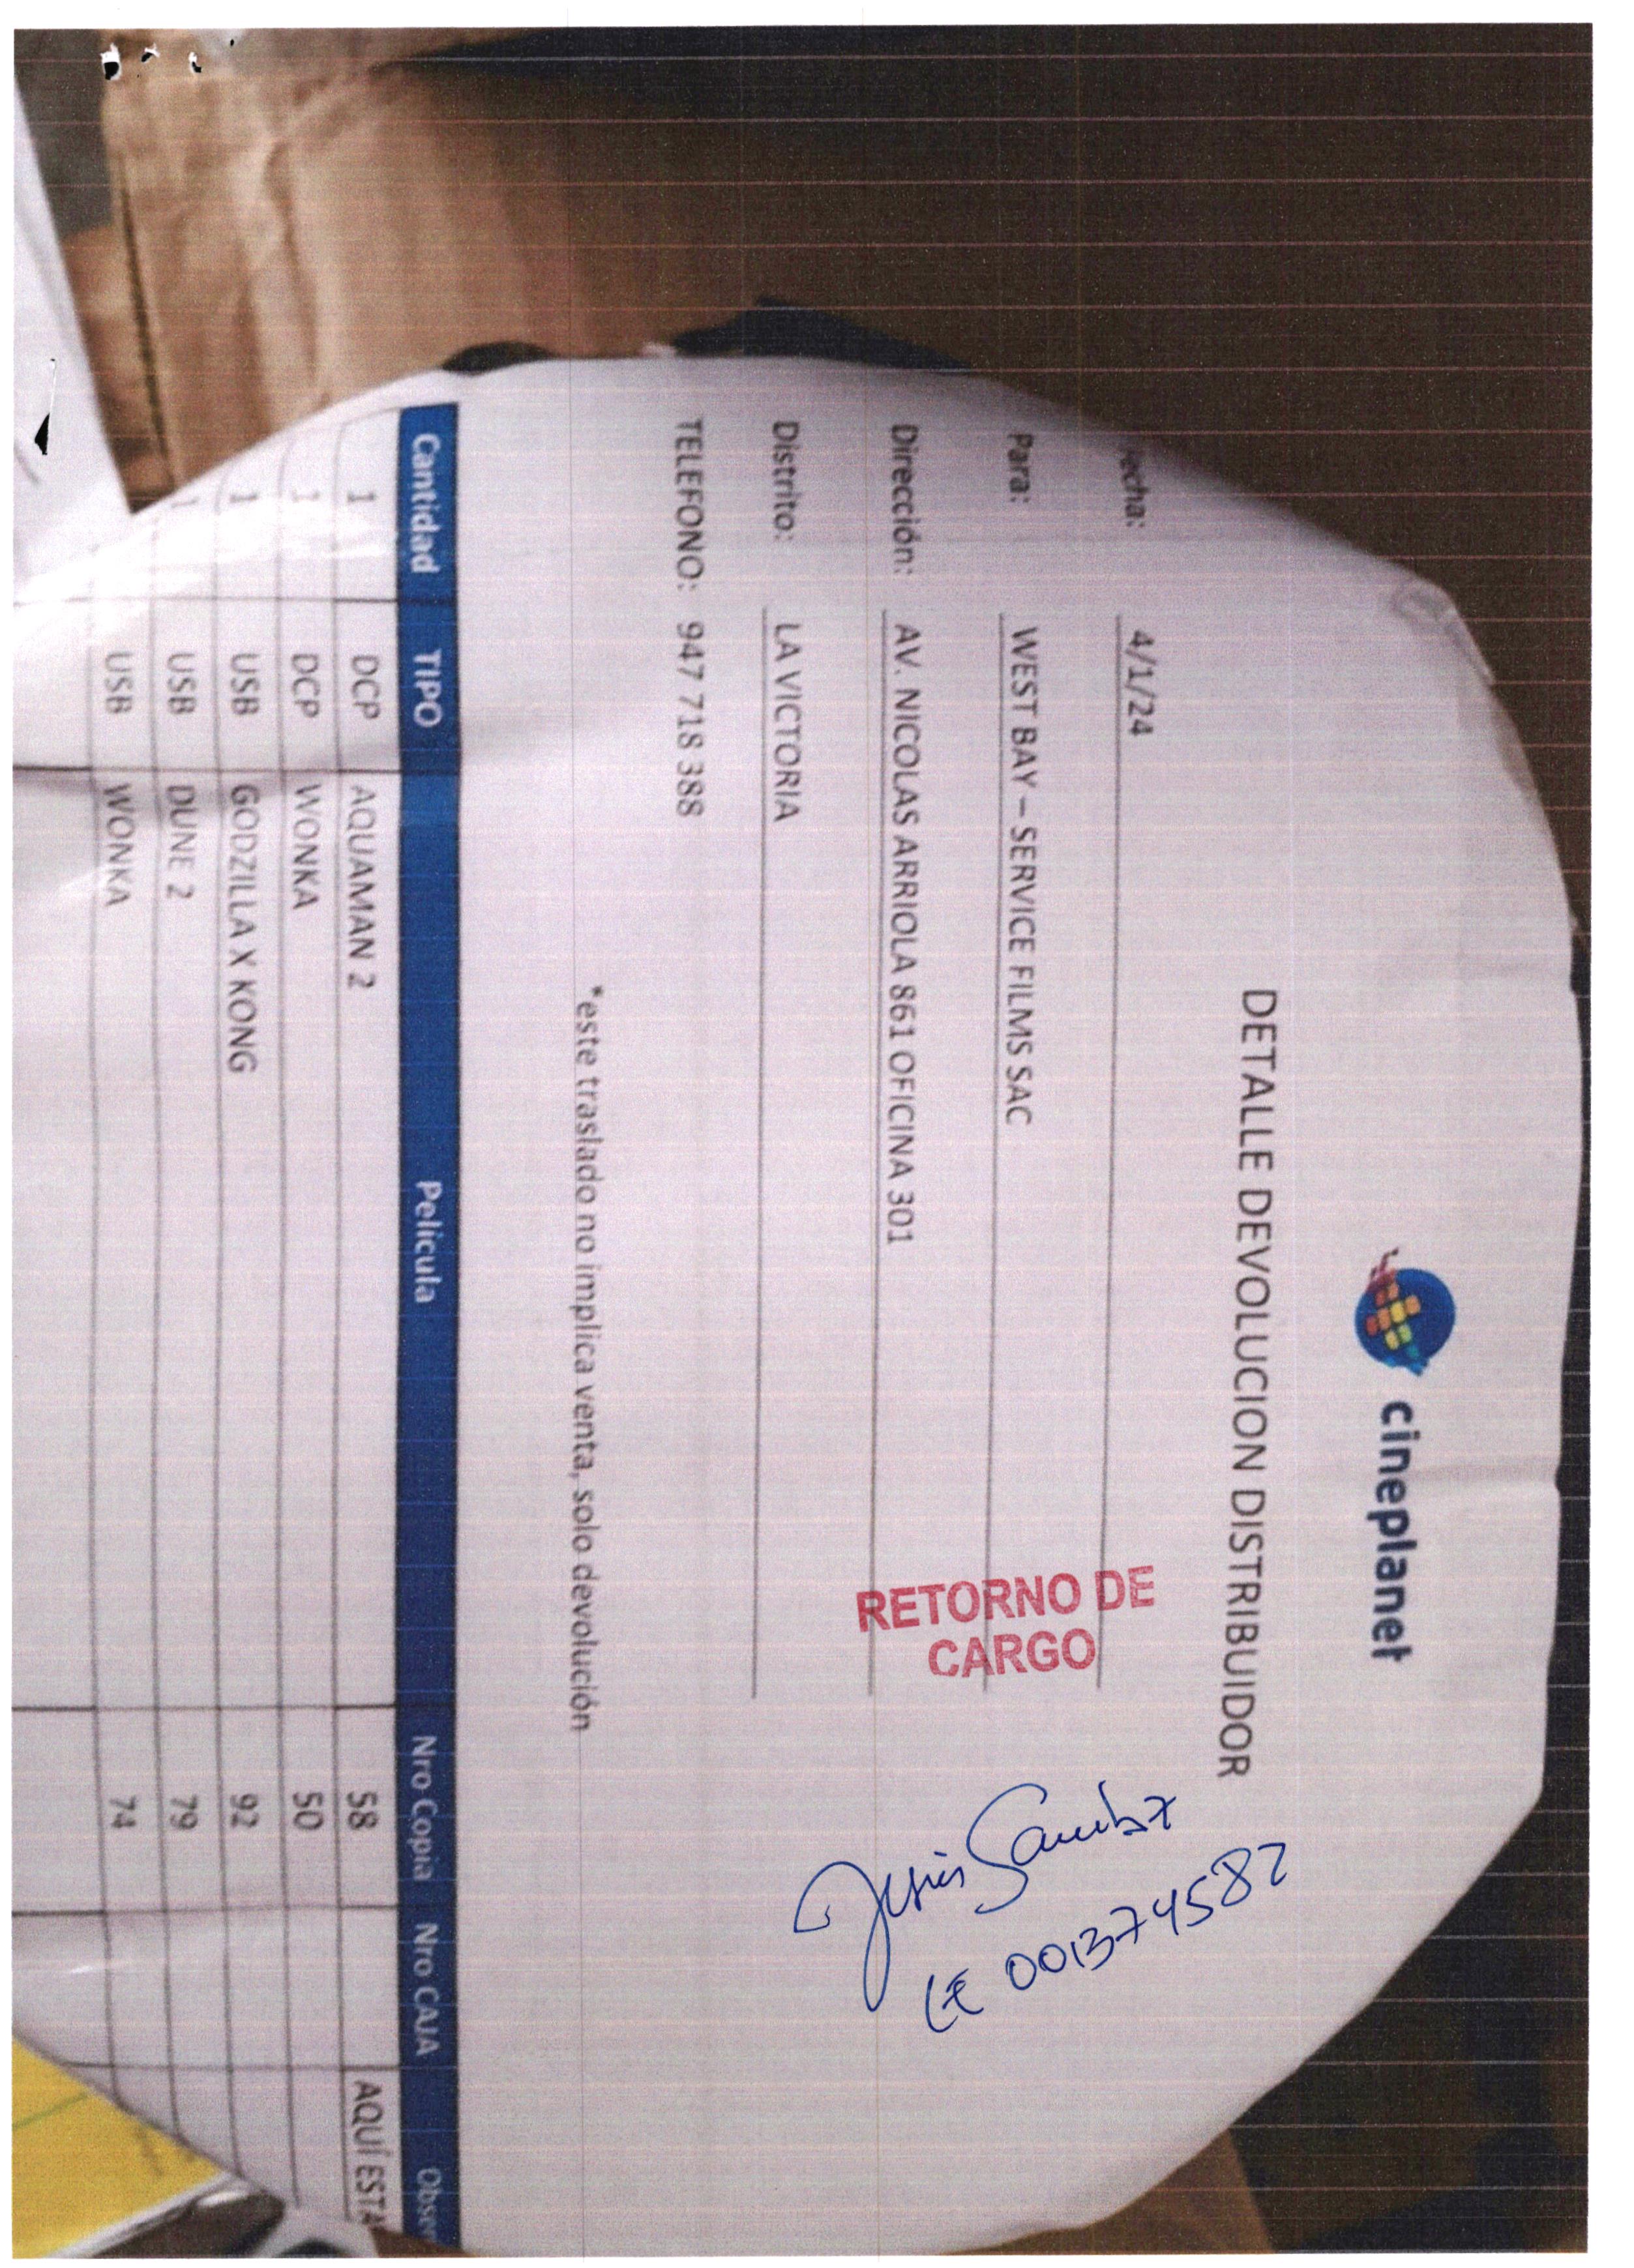 cineplanet
DETALLE DEVOLUCION DISTRIBUIDOR
echa: 4/1/24
Para: WEST BAY – SERVICE FILMS SAC
Dirección: AV. NICOLAS ARRIOLA 861 OFICINA 301
Distrito: LA VICTORIA
TELEFONO: 947 718 388
RETORNO DE
CARGO
CE 001374582
*este traslado no implica venta, solo devolución
Cantidad TIPO Película Nro Copia Nro CAJA Obser
1 DCP AQUAMAN 2 58 AQUÍ ESTA
1 DCP WONKA 50
1 USB GODZILLA X KONG 92
1 USB DUNE 2 79
USB WONKA 74